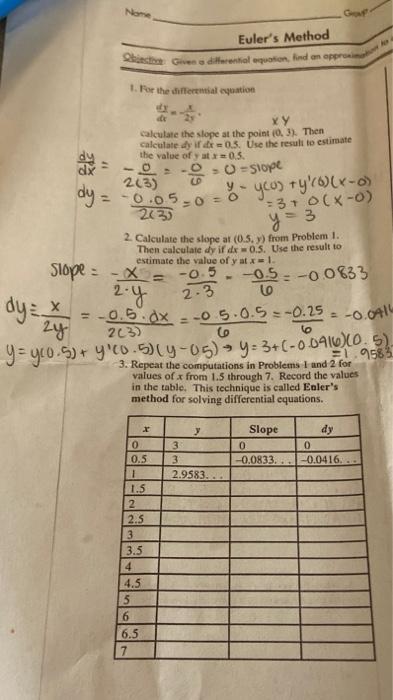 Name Group
Euler's Method
Objective: Given a differential equation, find an approximation to
1. For the differential equation
dy/dx = - x/2y,
x y
calculate the slope at the point (0, 3). Then
calculate dy if dx = 0.5. Use the result to estimate
the value of y at x = 0.5.
dy/dx = - 0/2(3) = - 0/6 = 0 = slope
y = y(0) + y'(0)(x-0)
dy = -0.05/2(3) = 0 = 0
= 3 + 0(x-0)
y = 3
2. Calculate the slope at (0.5, y) from Problem 1.
Then calculate dy if dx = 0.5. Use the result to
estimate the value of y at x = 1.
Slope = -x/2·y = -0.5/2·3 = -0.5/6 = -0.0833
dy = x/2y = -0.5·dx/2(3) = -0.5·0.5/6 = -0.25/6 = -0.0416
y = y(0.5) + y'(0.5)(y-05) → y = 3+(-0.0916)(0.5)
= 1.9583
3. Repeat the computations in Problems 1 and 2 for
values of x from 1.5 through 7. Record the values
in the table. This technique is called Euler's
method for solving differential equations.
x y Slope dy
0 3 0 0
0.5 3 -0.0833... -0.0416...
1 2.9583...
1.5
2
2.5
3
3.5
4
4.5
5
6
6.5
7